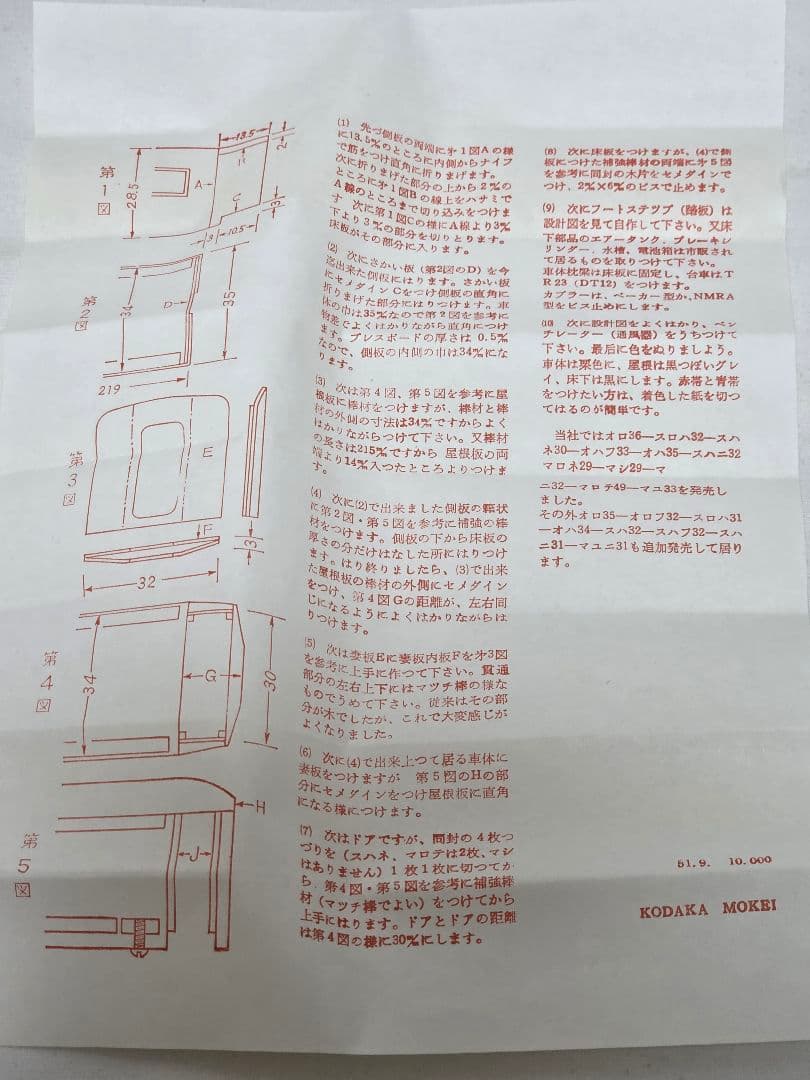 第1図
18.5
2
1
A
28.5
C
3
3
10.5
第2図
34
D
35
219
第3図
E
F
3
32
第4図
34
G
30
第5図
H
J
(1) 先づ側板の両端に㐧1図Aの様
に13.5%のところに内側からナイフ
で筋をつけ直角に折りまげます。
次に折りまげた部分の上から2%の
ところに㐧1図Bの線上をハサミで
A線のところまで切り込みをつけま
す 次に第1図Cの様にA線より3%
下より3%の部分を切りとります。
床板がその部分に入ります。
(2) 次にさかい板(第2図のD)を今
迄出来た側板にはります。さかい板
にセメダインCをつけ側板の直角に
折りまげた部分にはりつけます。車
体の巾は35%なので第2図を参考に
物差でよくはかりながら直角につけ
ます。プレスボードの厚さは0.5%
なので、側板の内側の巾は34%にな
ります。
(3) 次は第4図、第5図を参考に屋
根板に棒材をつけますが、棒材と棒
材の外側の寸法は34%ですからよく
はかりながらつけて下さい。又棒材
の長さは215%ですから 屋根板の両
端より14%入つたところよりつけま
す。
(4) 次に(2)で出来ました側板の箱状
に第2図・第5図を参考に補強の棒
材をつけます。側板の下から床板の
厚さの分だけはなした所にはりつけ
ます。はり終りましたら、(3)で出来
た屋根板の棒材の外側にセメダイン
をつけ、第4図Gの距離が、左右同
じになるようによくはかりながらは
りつけます。
(5) 次は妻板Eに妻板内板Fを㐧3図
を参考に上手に作つて下さい。貫通
部分の左右上下にはマツチ棒の様な
ものでうめて下さい。従来はその部
分が木でしたが、これで大変感じが
よくなりました。
(6) 次に(4)で出来上つて居る車体に
妻板をつけますが 第5図のHの部
分にセメダインをつけ屋根板に直角
になる様につけます。
(7) 次はドアですが、同封の4枚つ
づりを(スハネ、マロテは2枚、マシ
はありません)1枚1枚に切つてか
ら、第4図・第5図を参考に補強棒
材(マッチ棒でよい)をつけてから
上手にはります。ドアとドアの距離
は第4図の様に30%にします。
(8) 次に床板をつけますが、(4)で側
板につけた補強棒材の両端に㐧5図
を参考に同封の木片をセメダインで
つけ、2%×6%のビスで止めます。
(9) 次にフートステツブ(踏板)は
設計図を見て自作して下さい。又床
下部品のエアータンク、ブレーキシ
リンダー、水槽、電池箱は市販され
て居るものを取りつけて下さい。
車体枕梁は床板に固定し、台車はT
R23(DT12)をつけます。
カプラーは、ベーカー型か、NMRA
型をビス止めにします。
(10) 次に設計図をよくはかり、ベン
チレーター(通風器)をうちつけて
下さい。最后に色をぬりましよう。
車体は栗色に、屋根は黒つぽいグレ
イ、床下は黒にします。赤帯と青帯
をつけたい方は、着色した紙を切つ
てはるのが簡単です。
当社ではオロ36―スロハ32―スハ
ネ30―オハフ33―オハ35―スハニ32
マロネ29―マシ29―マ
ニ32―マロテ49―マユ33を発売し
ました。
その外オロ35―オロフ32―スロハ31
―オハ34―スハ32―スハフ32―スハ
ニ31―マユニ31も追加発売して居り
ます。
51.9. 10.000
KODAKA MOKEI